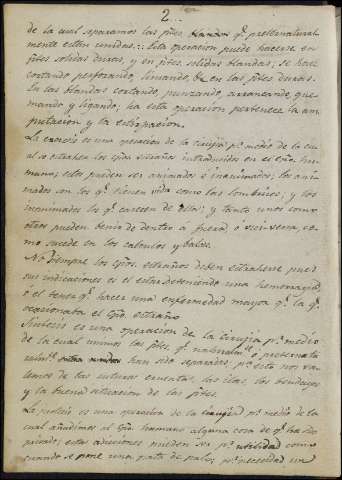 2...
de la cual separamos las ptes blandas q.e preternatural
mente estan unidas... Esta operacion puede hacerse en
ptes solidas duras, y en ptes solidas blandas; se hace
cortando perforando, limando, &c en las ptes duras.
En las blandas cortando, punzando, arrancando, que
mando y ligando; ha esta operacion pertenece la am
putacion y la estirpacion.
La exeresis es una operacion de la Cirujia p.r medio de la cu
al se estrahen los cpos. estraños introducidos en el cpo. hu
mano; estos pueden ser animados e inanimados; los ani
mados son los q.e tienen vida como las lombrices; y los
inanimados los q.e carecen de ella; y tanto unos como
otros pueden benir de dentro a fuera o viceversa, co
mo sucede en los calculos y balas.
No siempre los cpos. estraños deben estraherse pues
sus indicaciones es el estar deteniendo una hemorragia,
ó el temer q.e hacer una enfermedad mayor q.e la q.e
ocasionaba el cpo. estraño
Sintesis es una operacion de la cirujia p.r medio
de la cual unimos las ptes. q.e natural.te o preternatu
ralm.te han sido separadas; p.a esto nos va
lemos de las suturas cruentas, las secas, los bendajes
y la buena situacion de las ptes.
La protesis es una operacion de la Cirujia p.r medio de la
cual añadimos al cpo. humano alguna cosa de q.e ha sido
privado; estas adicciones pueden ser p.r utilidad como
cuando se pone una pata de palo; p.r necesidad un